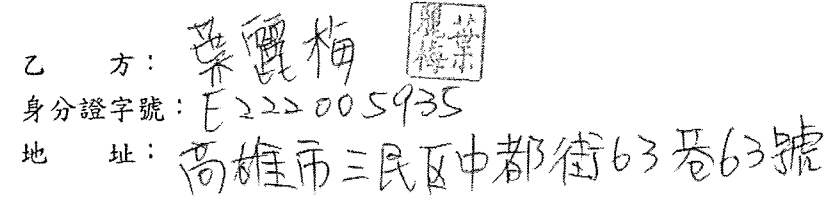 乙 方：葉麗梅 葉麗梅
身分證字號：E222005935
地 址：高雄市三民区中都街63巷63號